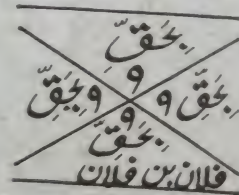 بِحَقِّ
٩
بِحَقِّ ٩ ٩ بِحَقِّ
٩
بِحَقِّ
فلان بن فلان